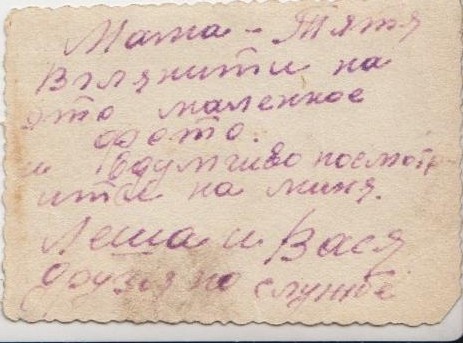 Мама - Тятя
Взглянити на
это маленкое
фото.
и вдумчиво посмотр-
ити на миня.
Леша и Вася
друзья по службе